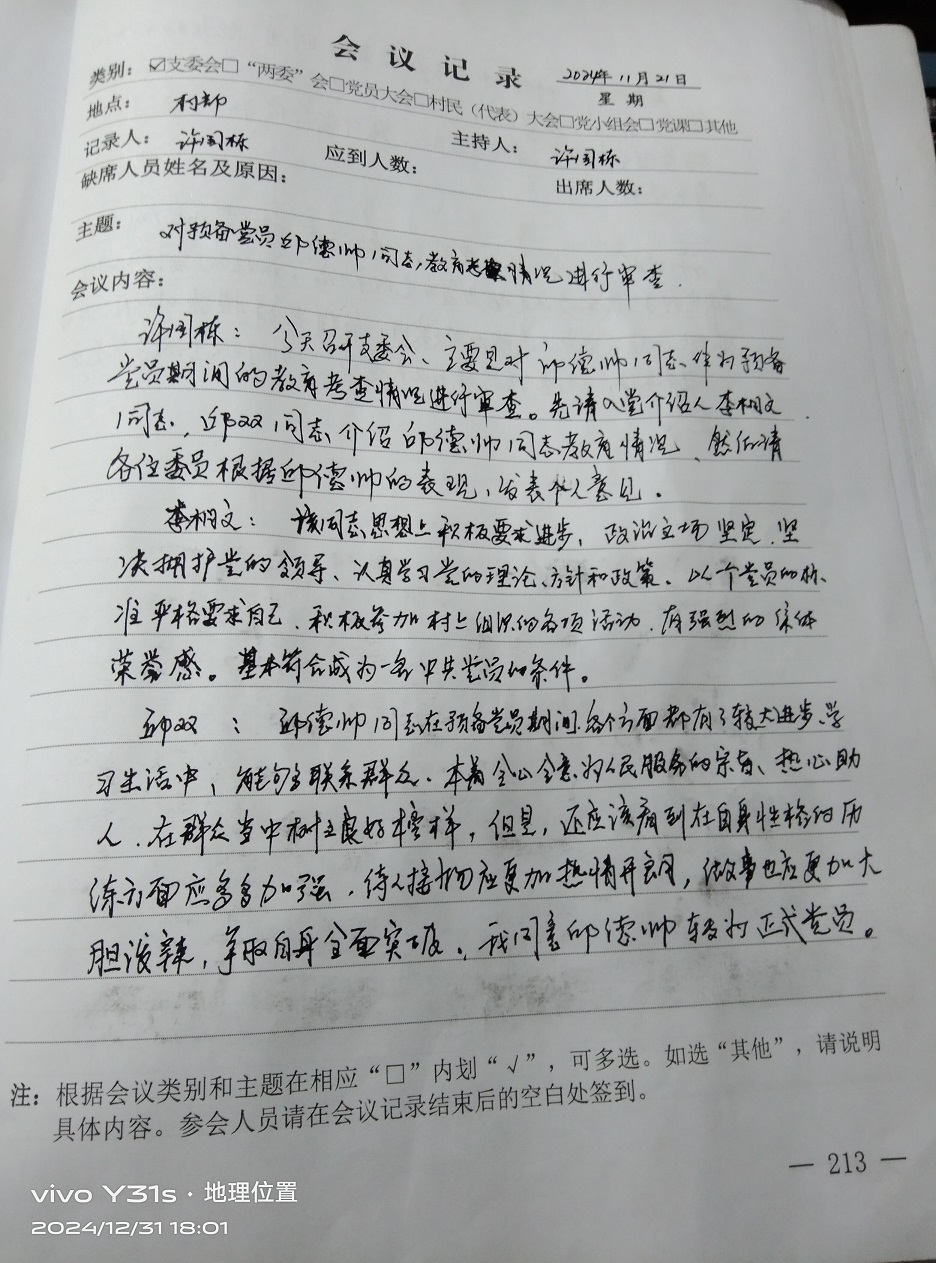 会议记录
2024年11月21日
类别：☑支委会□“两委”会□党员大会□村民（代表）大会□党小组会□党课□其他
星期
地点：村部
记录人：许同栋 应到人数： 主持人：许同栋
缺席人员姓名及原因： 出席人数：
主题：对预备党员邱德帅同志教育考察情况进行审查.
会议内容：
许同栋：今天召开支委会、主要是对邱德帅同志作为预备
党员期间的教育考查情况进行审查。先请入党介绍人李树文
同志，邱双同志介绍邱德帅同志教育情况、然后请
各位委员根据邱德帅的表现，发表个人意见。
李树文：该同志思想上积极要求进步，政治立场坚定、坚
决拥护党的领导、认真学习党的理论、方针和政策。以一个党员的标
准严格要求自己、积极参加村上组织的各项活动、有强烈的集体
荣誉感。基本符合成为一名中共党员的条件。
邱双：邱德帅同志在预备党员期间各个方面都有了较大进步、学
习生活中，能够主联系群众、本着全心全意为人民服务的宗旨、热心助
人、在群众当中树立良好榜样，但是，还应该看到在自身性格的历
练方面应多多加强，待人接物应更加热情开朗，做事也应更加大
胆泼辣，争取自身全面突破、我同意邱德帅转为正式党员。
注：根据会议类别和主题在相应“□”内划“√”，可多选。如选“其他”，请说明
具体内容。参会人员请在会议记录结束后的空白处签到。
— 213 —
vivo Y31s · 地理位置
2024/12/31 18:01